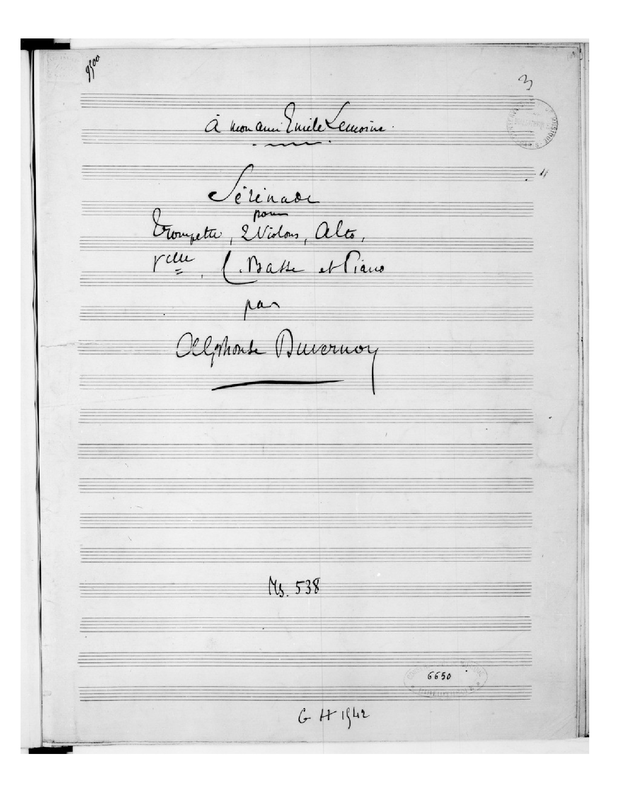 9500
3
à mon ami Emile Lemoine.
Sérénade
pour
Trompette, 2 Violons, Alto,
Vcelle, C. Basse et Piano
par
Alphonse Duvernoy
Ms. 538
6650
G H 1942